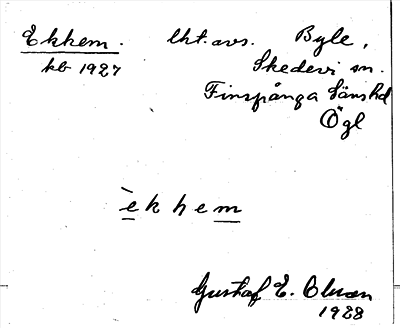 Ekhem. lht. avs. Byle,
kb 1927 Skedevi sn.
Finspånga länshd
Ögl
èkhem
Gustaf E.
1928